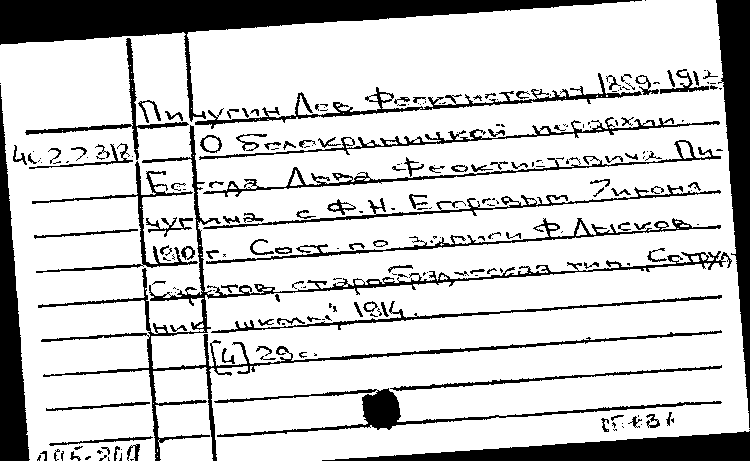 Пичугин, Лев Феоктистович, 1859-1912
О белокриницкой иерархии.
Беседа Льва Феоктистовича Пи-
чугина с Ф.Н. Егоровым 7 июня
1910 г. Сост. по записи Ф. Лысков.
Саратов, старообрядческая тип. "Сотруд
ник школы", 1914.
[4], 28 с.